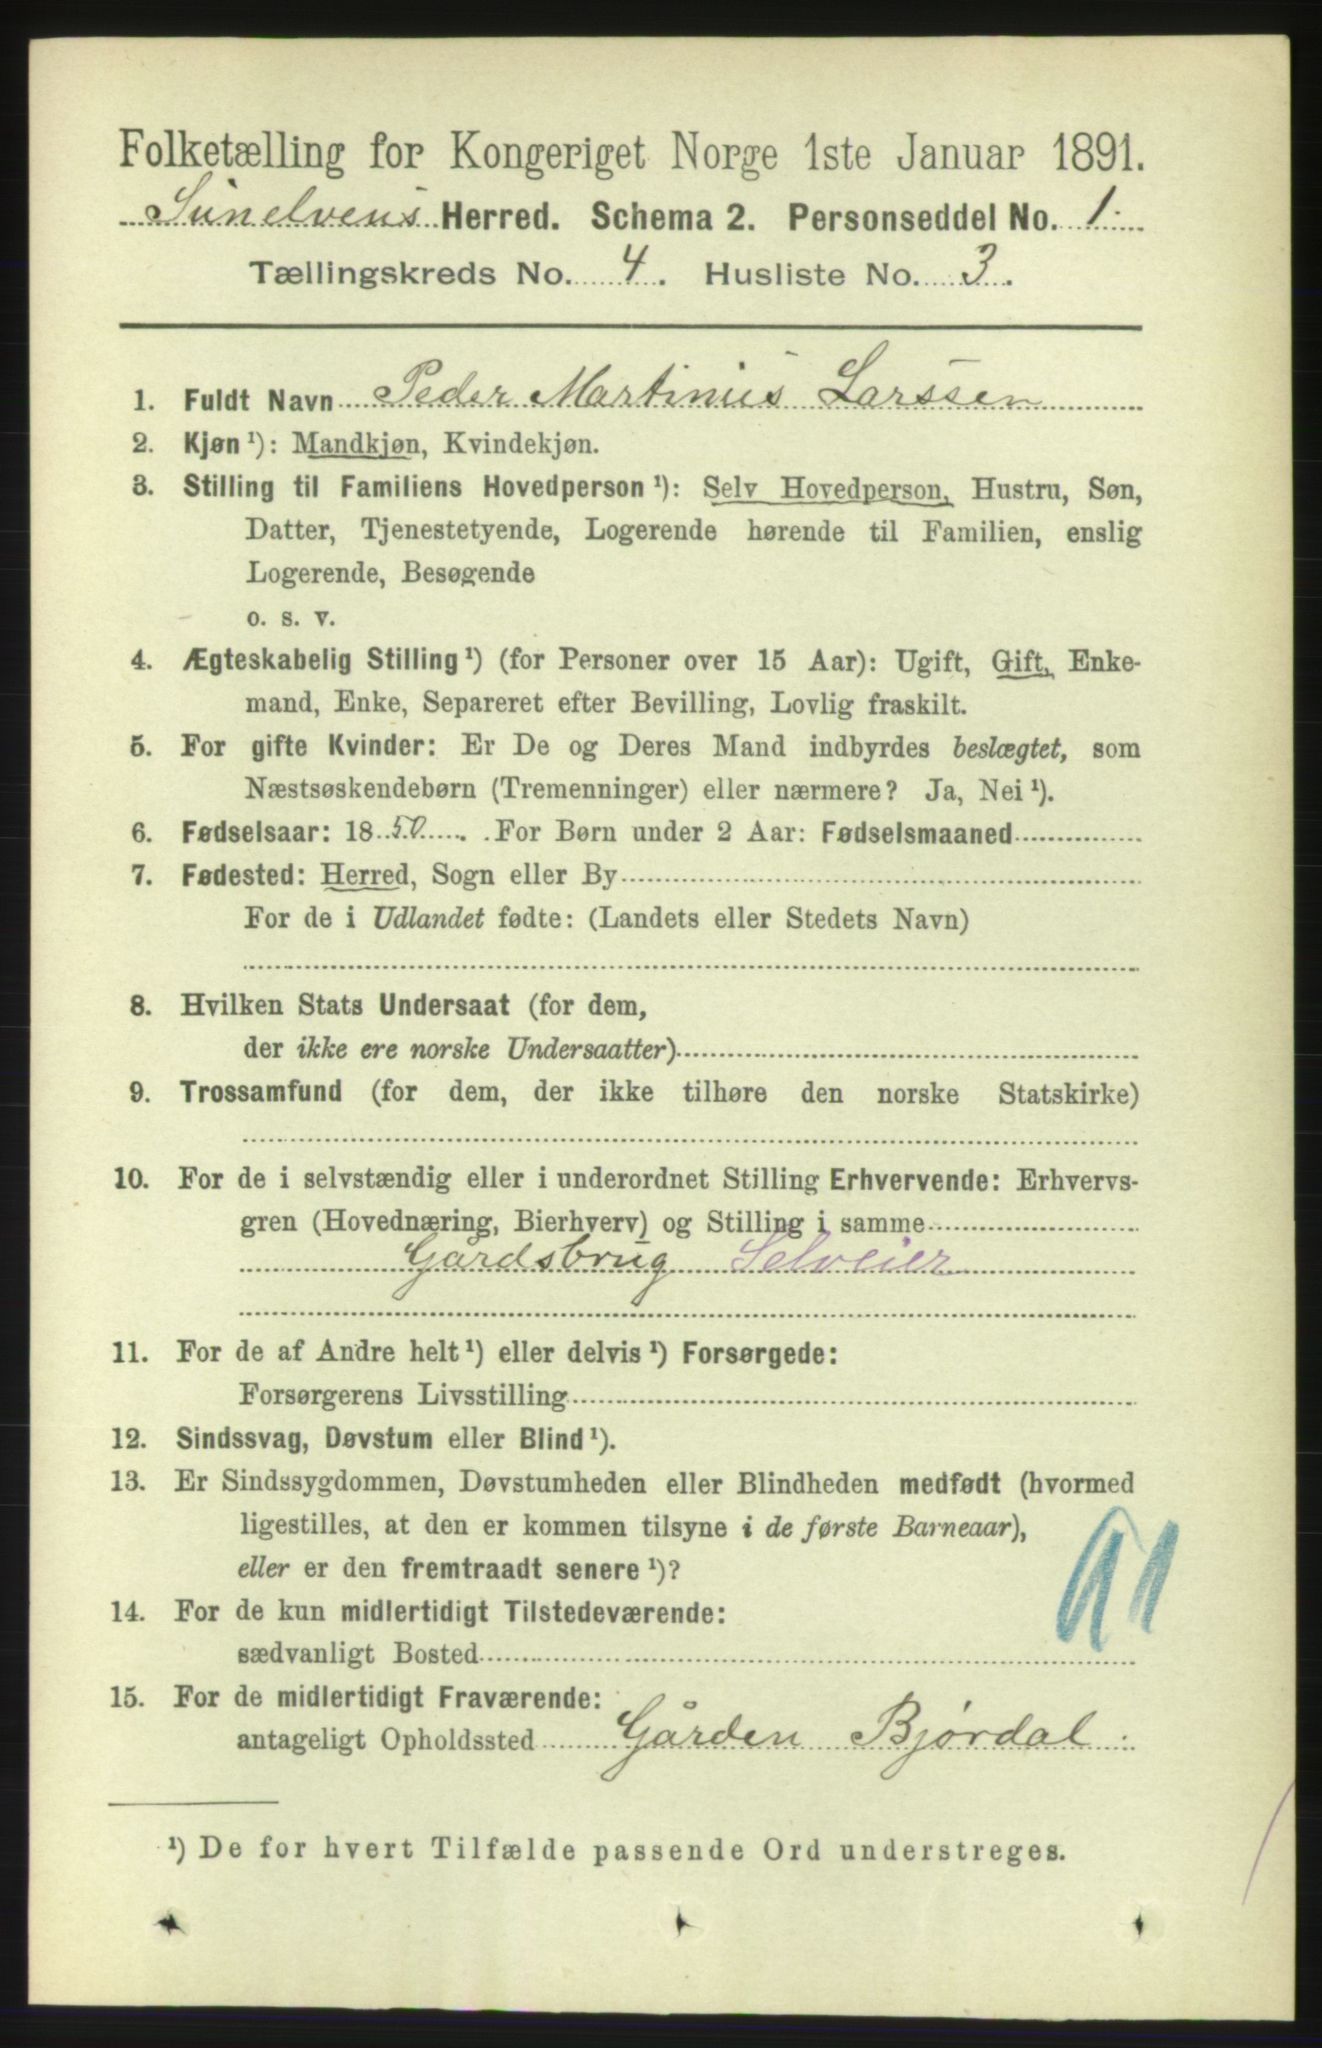 Folketælling for Kongeriget Norge 1ste Januar 1891.
Sunelvens Herred. Schema 2. Personseddel No. 1.
Tællingskreds No. 4. Husliste No. 3.
1. Fuldt Navn Peder Martinus Larssen
2. Kjøn ¹): Mandkjøn, Kvindekjøn.
3. Stilling til Familiens Hovedperson ¹): Selv Hovedperson, Hustru, Søn,
Datter, Tjenestetyende, Logerende hørende til Familien, enslig
Logerende, Besøgende
o. s. v.
4. Ægteskabelig Stilling ¹) (for Personer over 15 Aar): Ugift, Gift, Enke-
mand, Enke, Separeret efter Bevilling, Lovlig fraskilt.
5. For gifte Kvinder: Er De og Deres Mand indbyrdes beslægtet, som
Næstsøskendebørn (Tremenninger) eller nærmere? Ja, Nei ¹).
6. Fødselsaar: 1850. For Børn under 2 Aar: Fødselsmaaned
7. Fødested: Herred, Sogn eller By
For de i Udlandet fødte: (Landets eller Stedets Navn)
8. Hvilken Stats Undersaat (for dem,
der ikke ere norske Undersaatter)
9. Trossamfund (for dem, der ikke tilhøre den norske Statskirke)
10. For de i selvstændig eller i underordnet Stilling Erhvervende: Erhvervs-
gren (Hovednæring, Bierhverv) og Stilling i samme
Gårdsbrug Selveier
11. For de af Andre helt ¹) eller delvis ¹) Forsørgede:
Forsørgerens Livsstilling
12. Sindssvag, Døvstum eller Blind ¹).
13. Er Sindssygdommen, Døvstumheden eller Blindheden medfødt (hvormed
ligestilles, at den er kommen tilsyne i de første Barneaar),
eller er den fremtraadt senere ¹)?
91
14. For de kun midlertidigt Tilstedeværende:
sædvanligt Bosted
15. For de midlertidigt Fraværende:
antageligt Opholdssted Gården Bjørdal.
¹) De for hvert Tilfælde passende Ord understreges.